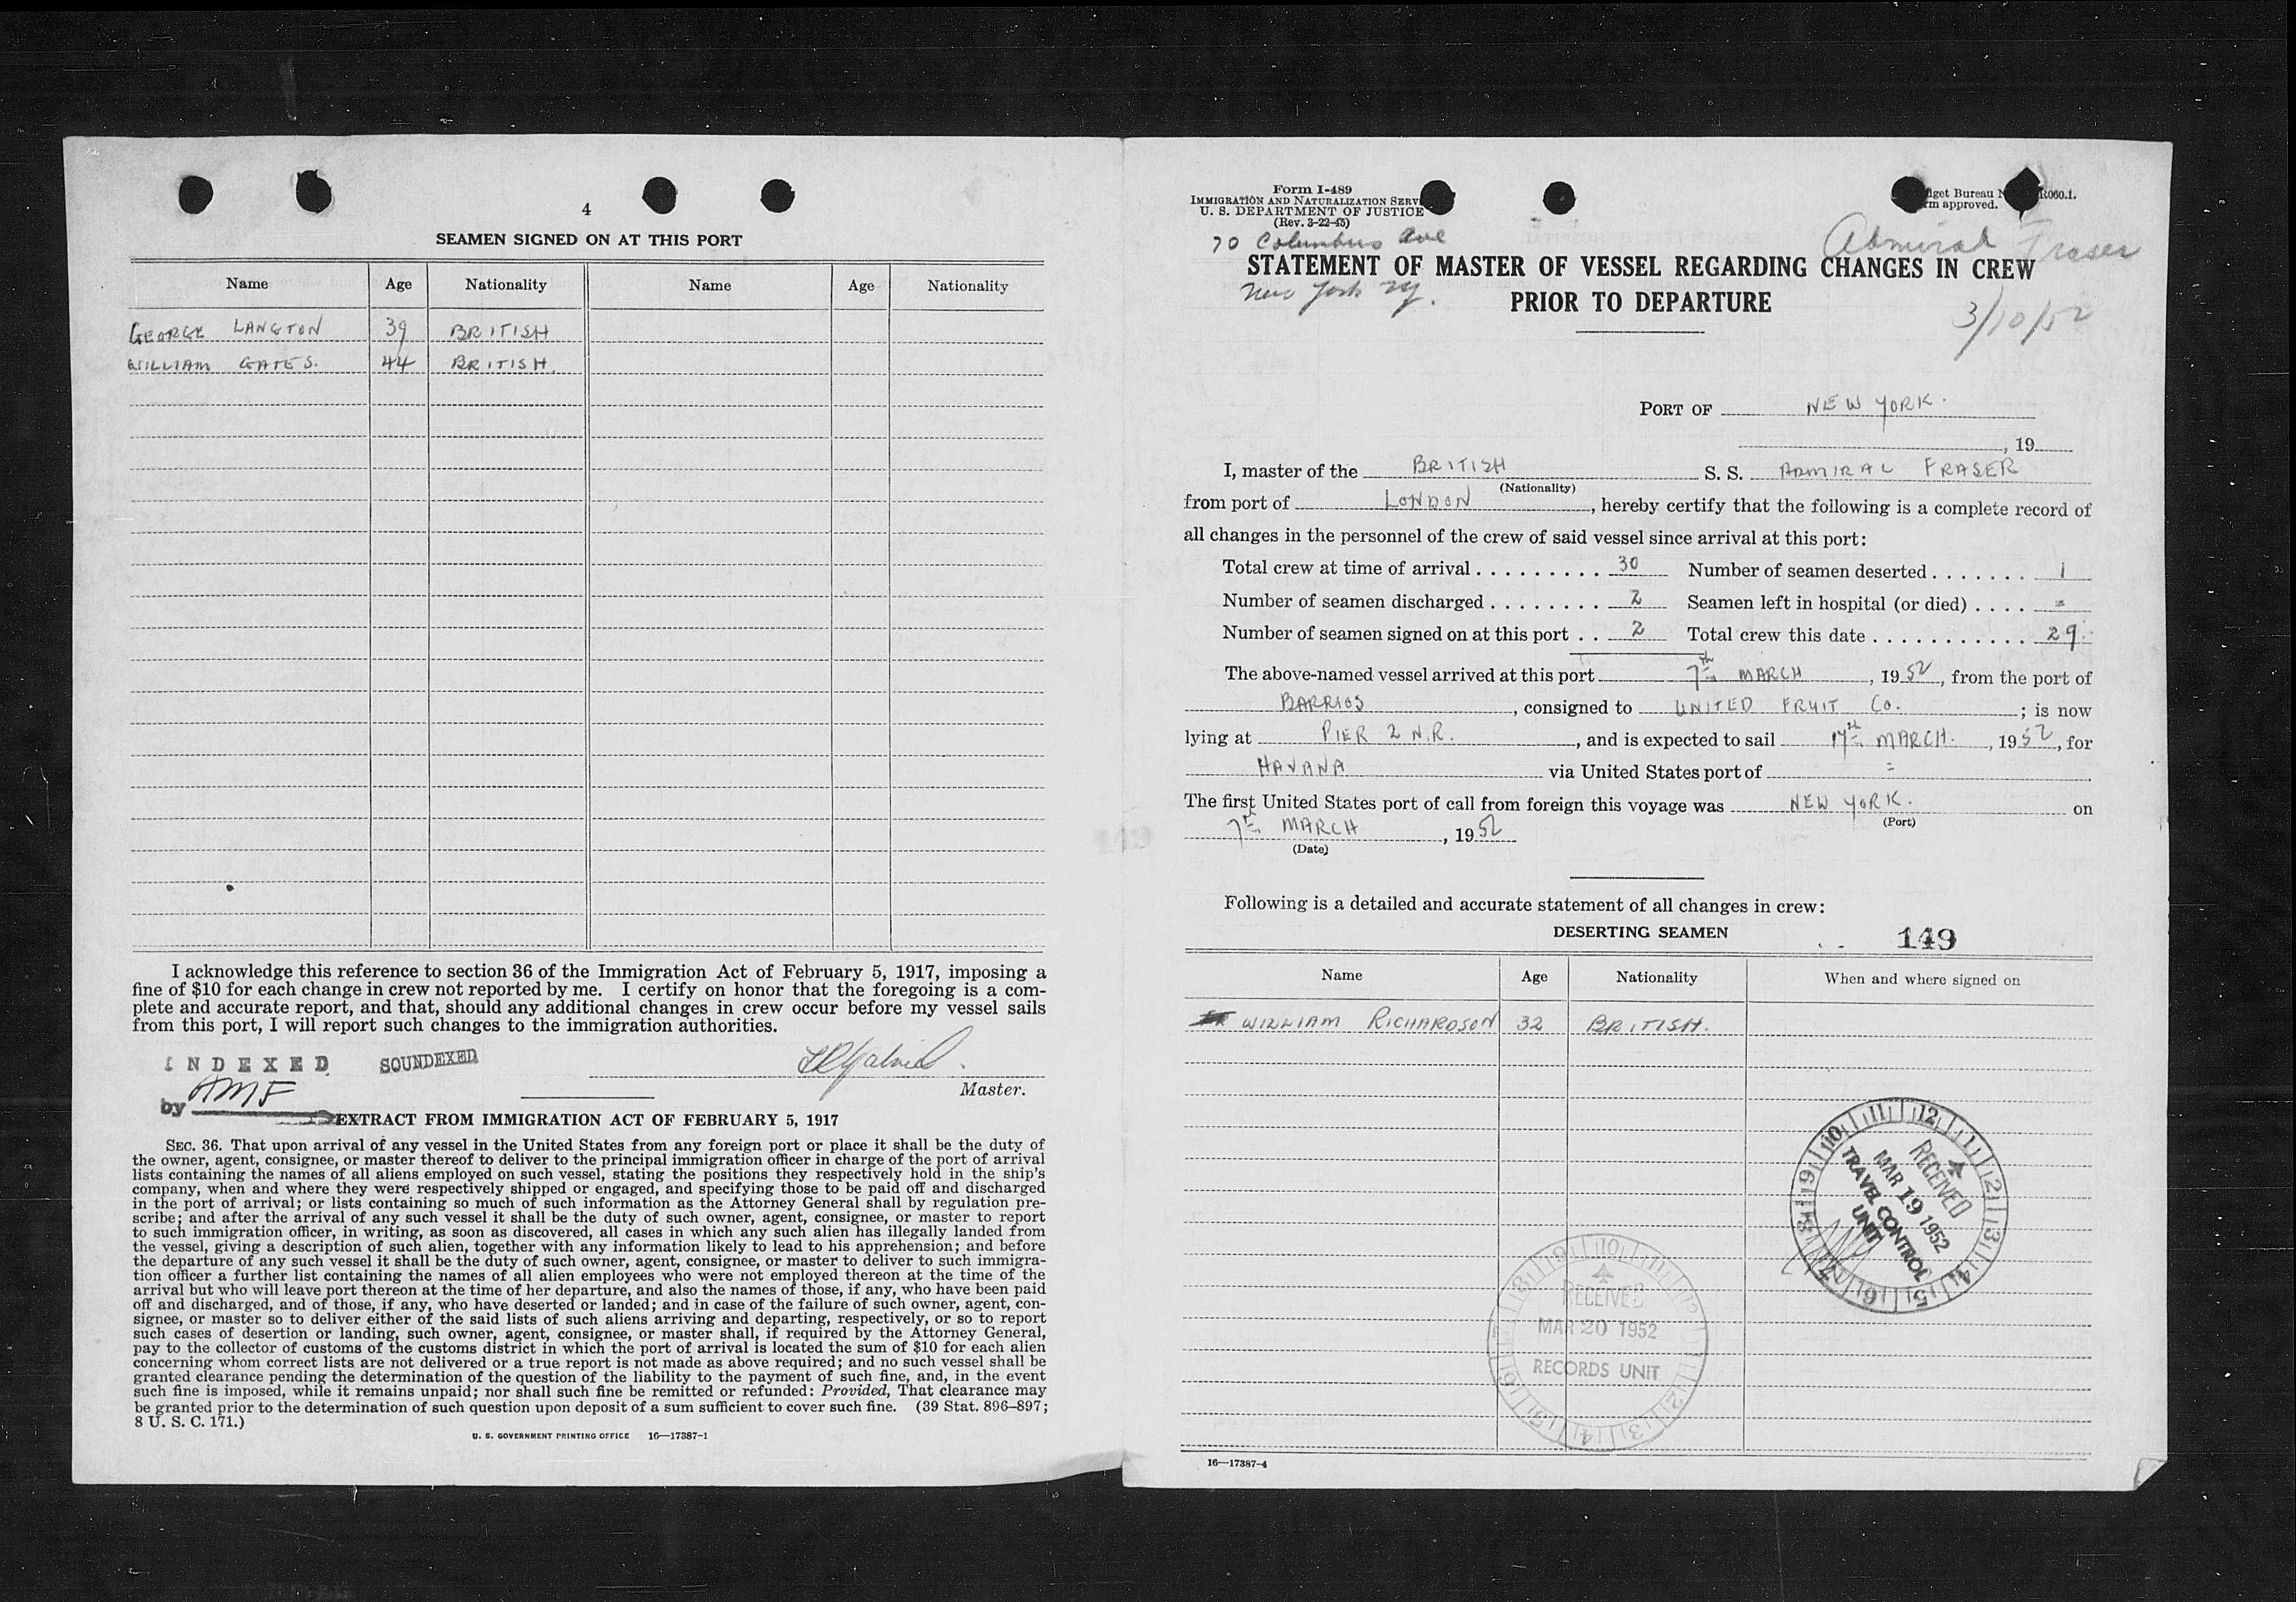 4
SEAMEN SIGNED ON AT THIS PORT
Name Age Nationality Name Age Nationality
GEORGE LANGTON 39 BRITISH
WILLIAM GATES. 44 BRITISH.
I acknowledge this reference to section 36 of the Immigration Act of February 5, 1917, imposing a
fine of $10 for each change in crew not reported by me. I certify on honor that the foregoing is a com-
plete and accurate report, and that, should any additional changes in crew occur before my vessel sails
from this port, I will report such changes to the immigration authorities.
INDEXED SOUNDEXED
Master.
by AMF
EXTRACT FROM IMMIGRATION ACT OF FEBRUARY 5, 1917
SEC. 36. That upon arrival of any vessel in the United States from any foreign port or place it shall be the duty of
the owner, agent, consignee, or master thereof to deliver to the principal immigration officer in charge of the port of arrival
lists containing the names of all aliens employed on such vessel, stating the positions they respectively hold in the ship's
company, when and where they were respectively shipped or engaged, and specifying those to be paid off and discharged
in the port of arrival; or lists containing so much of such information as the Attorney General shall by regulation pre-
scribe; and after the arrival of any such vessel it shall be the duty of such owner, agent, consignee, or master to report
to such immigration officer, in writing, as soon as discovered, all cases in which any such alien has illegally landed from
the vessel, giving a description of such alien, together with any information likely to lead to his apprehension; and before
the departure of any such vessel it shall be the duty of such owner, agent, consignee, or master to deliver to such immigra-
tion officer a further list containing the names of all alien employees who were not employed thereon at the time of the
arrival but who will leave port thereon at the time of her departure, and also the names of those, if any, who have been paid
off and discharged, and of those, if any, who have deserted or landed; and in case of the failure of such owner, agent, con-
signee, or master so to deliver either of the said lists of such aliens arriving and departing, respectively, or so to report
such cases of desertion or landing, such owner, agent, consignee, or master shall, if required by the Attorney General,
pay to the collector of customs of the customs district in which the port of arrival is located the sum of $10 for each alien
concerning whom correct lists are not delivered or a true report is not made as above required; and no such vessel shall be
granted clearance pending the determination of the question of the liability to the payment of such fine, and, in the event
such fine is imposed, while it remains unpaid; nor shall such fine be remitted or refunded: Provided, That clearance may
be granted prior to the determination of such question upon deposit of a sum sufficient to cover such fine. (39 Stat. 896–897;
8 U. S. C. 171.)
U. S. GOVERNMENT PRINTING OFFICE 16—17387-1
Form I-489
IMMIGRATION AND NATURALIZATION SERV
U. S. DEPARTMENT OF JUSTICE
(Rev. 3-22-45)
get Bureau N R060.1.
m approved.
70 Columbus Ave
Admiral Fraser
STATEMENT OF MASTER OF VESSEL REGARDING CHANGES IN CREW
New York NY.
PRIOR TO DEPARTURE
3/10/52
PORT OF NEW YORK.
, 19
I, master of the BRITISH S. S. ADMIRAL FRASER
(Nationality)
from port of LONDON, hereby certify that the following is a complete record of
all changes in the personnel of the crew of said vessel since arrival at this port:
Total crew at time of arrival . . . . . . . . . 30 Number of seamen deserted . . . . . . . 1
Number of seamen discharged . . . . . . . . 2 Seamen left in hospital (or died) . . . . =
Number of seamen signed on at this port . . 2 Total crew this date . . . . . . . . . . . 29.
The above-named vessel arrived at this port 7th MARCH, 1952, from the port of
BARRIOS, consigned to UNITED FRUIT Co.; is now
lying at PIER 2 N.R., and is expected to sail 17th MARCH., 1952, for
HAVANA via United States port of =
The first United States port of call from foreign this voyage was NEW YORK. on
(Port)
7th MARCH, 1952
(Date)
Following is a detailed and accurate statement of all changes in crew:
DESERTING SEAMEN
149
Name Age Nationality When and where signed on
WILLIAM RICHARDSON 32 BRITISH.
12 1 2 3 4 5 6 7 8 9 10 11
RECEIVED
MAR 19 1952
TRAVEL CONTROL
UNIT
RECEIVED
MAR 20 1952
RECORDS UNIT
16—17387-4